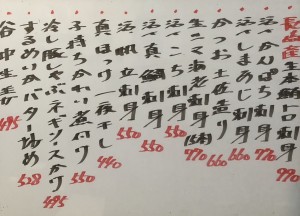 長崎産生本鮪トロ刺身 990
活〆かんぱち刺身 770
活〆しまあじ刺身 660
かつお土佐造り 660
生こくみ老刺身 770
活〆こち刺身 550
活〆真鯛刺身 550
真ほっけ一夜干し 440
子持ちかれい煮付け 550
冷し豚しゃぶネギソースがけ 495
するめいかバター炒め 528
谷中生姜 495